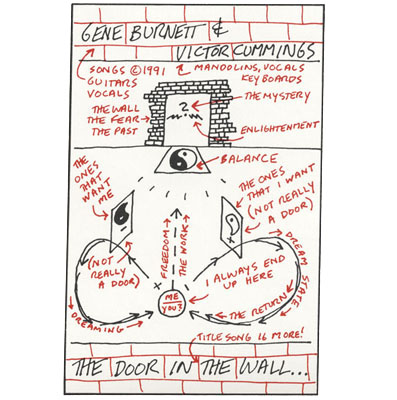 GENE BURNETT &
VICTOR CUMMINGS
SONGS ©1991
GUITARS
VOCALS
MANDOLINS, VOCALS
KEYBOARDS
THE WALL
THE FEAR
THE PAST
?
THE MYSTERY
ENLIGHTENMENT
BALANCE
THE
ONES
THAT
WANT
ME
(NOT
REALLY
A DOOR)
THE ONES
THAT I WANT
(NOT REALLY
A DOOR)
FREEDOM
THE WORK
DREAM
STATE
I ALWAYS END
UP HERE
ME
YOU?
DREAMING
THE RETURN
TITLE SONG 16 MORE!
THE DOOR IN THE WALL...